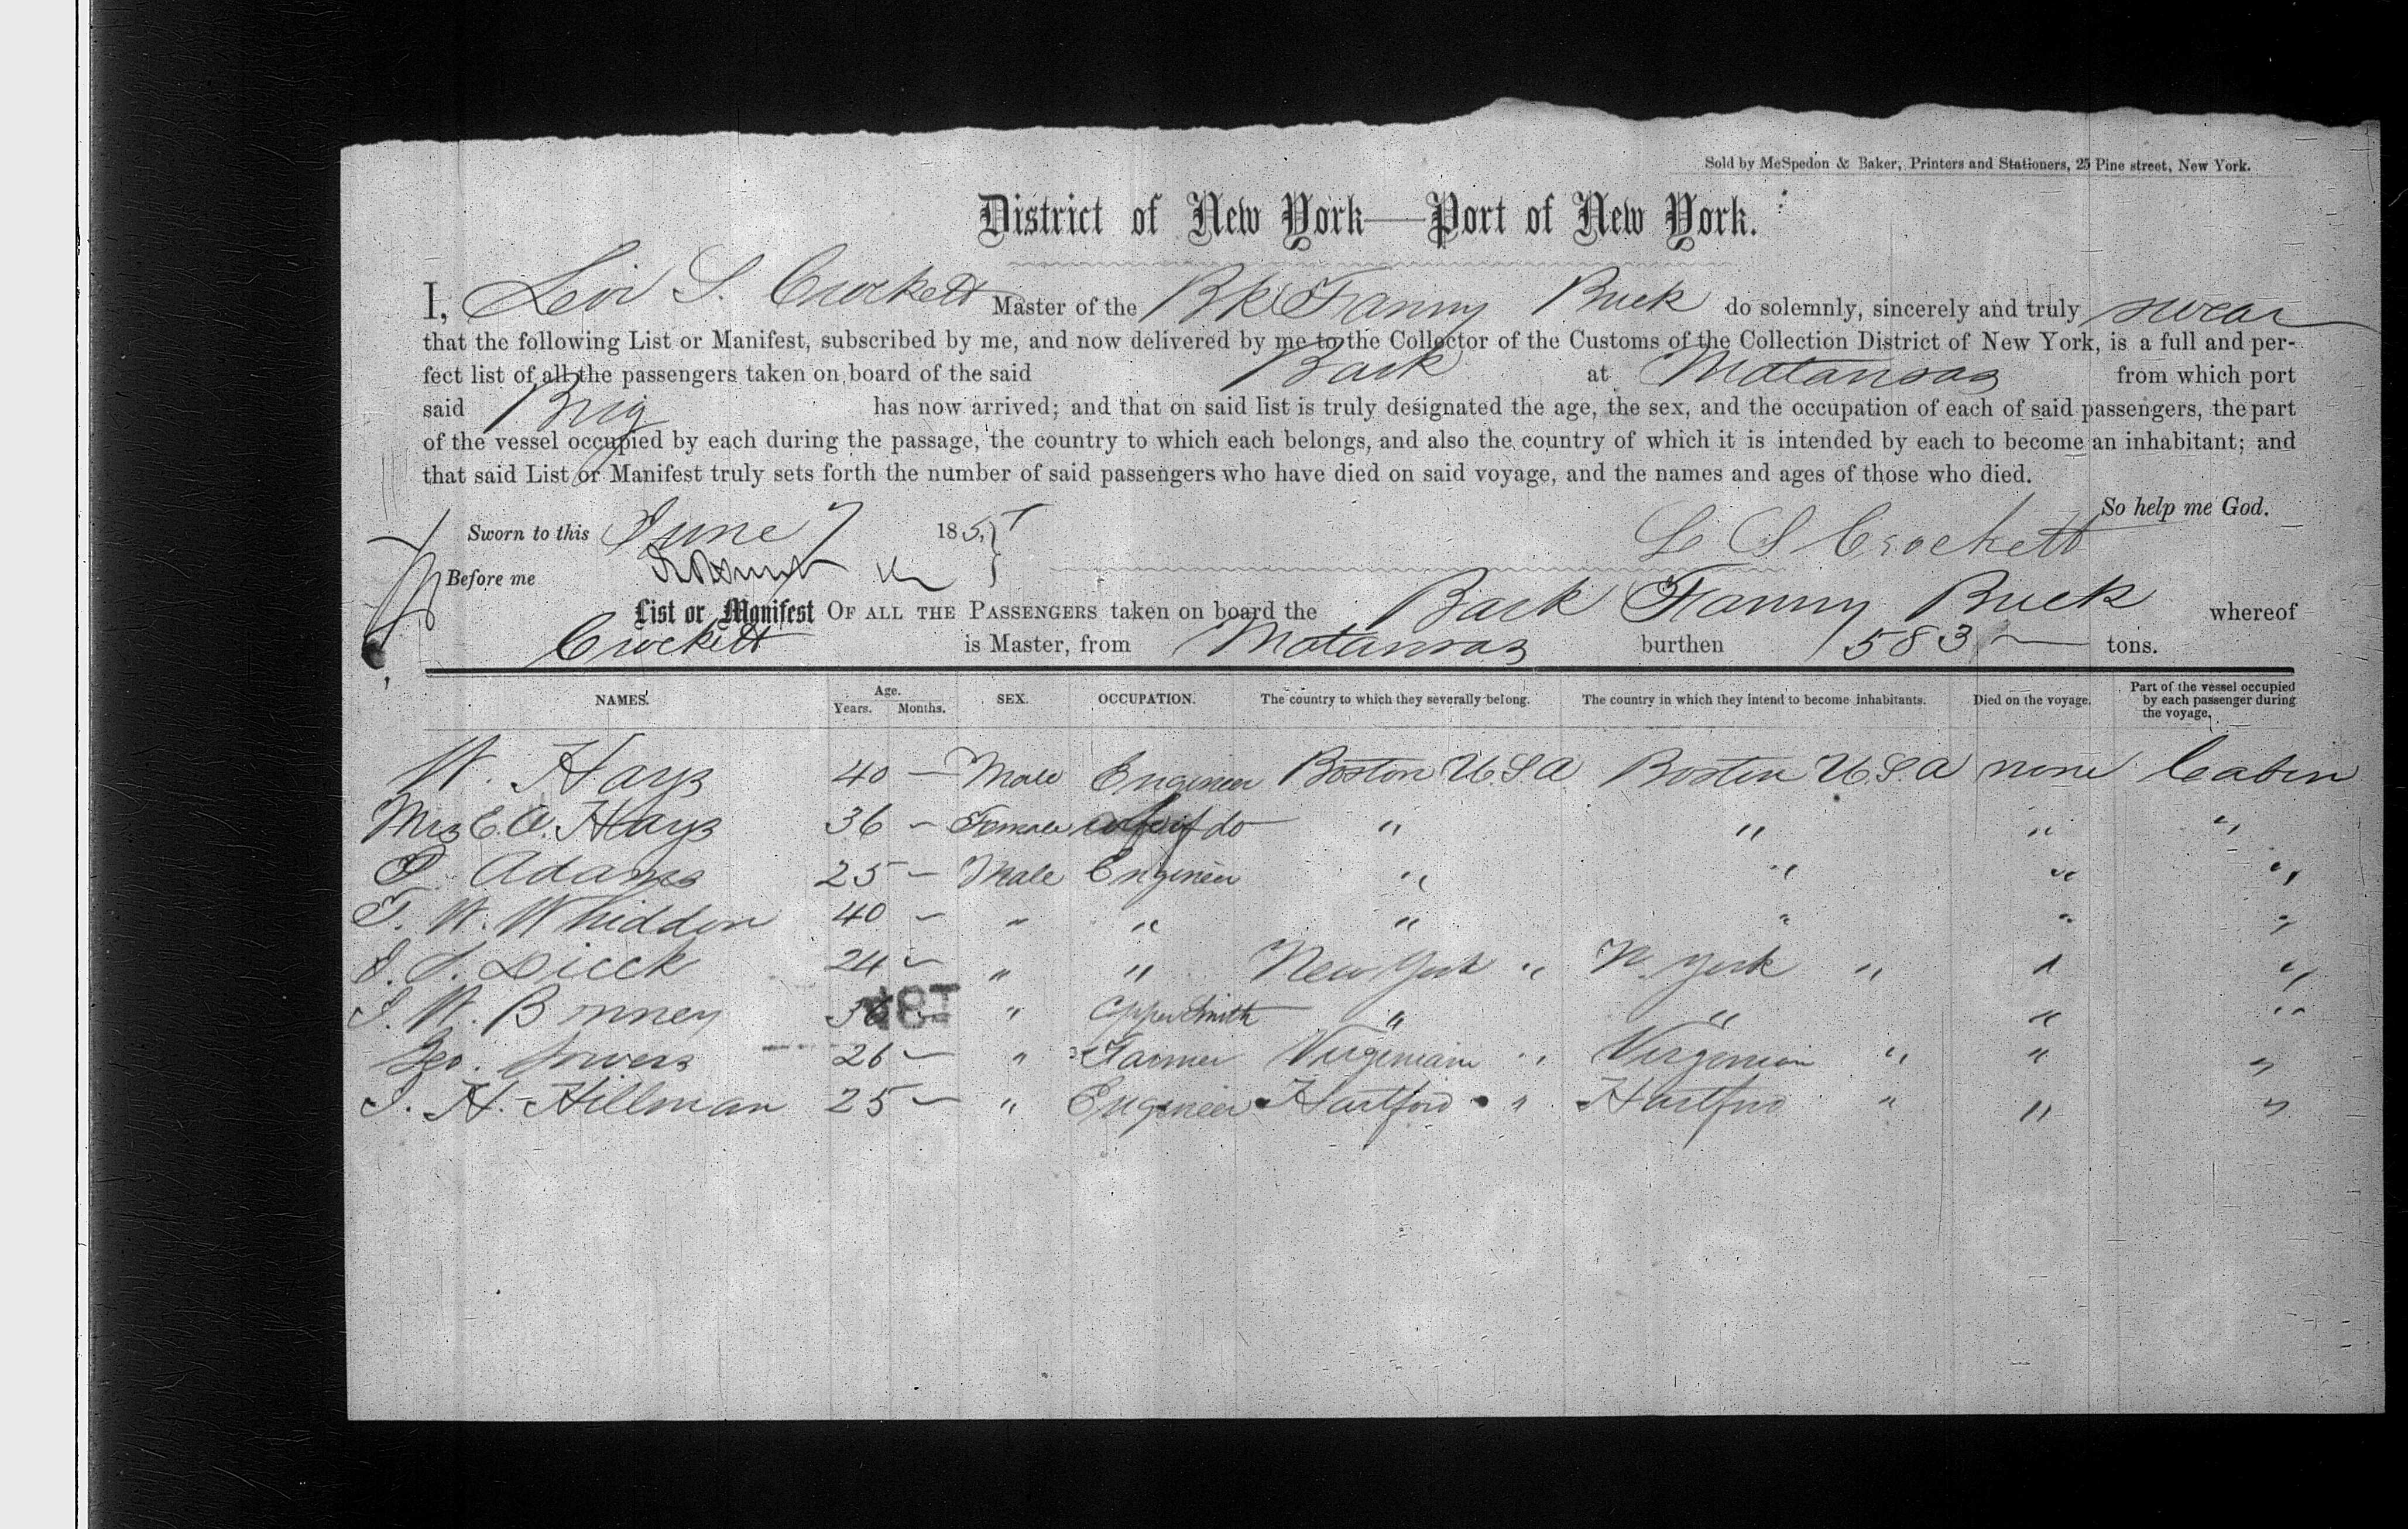 Sold by McSpedon & Baker, Printers and Stationers, 25 Pine street, New York.
District of New York—Port of New York.
I, Levi S. Crockett Master of the Bk Fanny Buck do solemnly, sincerely and truly swear
that the following List or Manifest, subscribed by me, and now delivered by me to the Collector of the Customs of the Collection District of New York, is a full and per-
fect list of all the passengers taken on board of the said Bark at Matansas from which port
said Brig has now arrived; and that on said list is truly designated the age, the sex, and the occupation of each of said passengers, the part
of the vessel occupied by each during the passage, the country to which each belongs, and also the country of which it is intended by each to become an inhabitant; and
that said List or Manifest truly sets forth the number of said passengers who have died on said voyage, and the names and ages of those who died.
So help me God.
Sworn to this June 7 185 L S Crockett
Before me
List or Manifest OF ALL THE PASSENGERS taken on board the Bark Fanny Buck whereof
Crockett is Master, from Matansas burthen 583 tons.
NAMES. Age. Years. Months. SEX. OCCUPATION. The country to which they severally belong. The country in which they intend to become inhabitants. Died on the voyage. Part of the vessel occupied by each passenger during the voyage.
W. Hays 40 — Male Engineer Boston U.S.A Boston U.S.A none Cabin
Mrs E. A. Hays 36 — Female wife of do " " " "
Adams 25 — Male Engineer " " " "
T. W. Whiddon 40 — " " " " " "
24 — " " New York " N. York " " "
J. W. Bonney — " Coppersmith " " " "
Geo. 26 — " Farmer Virginian " Virginian " " "
J. H. Hillman 25 — " Engineer Hartford " Hartford " " "